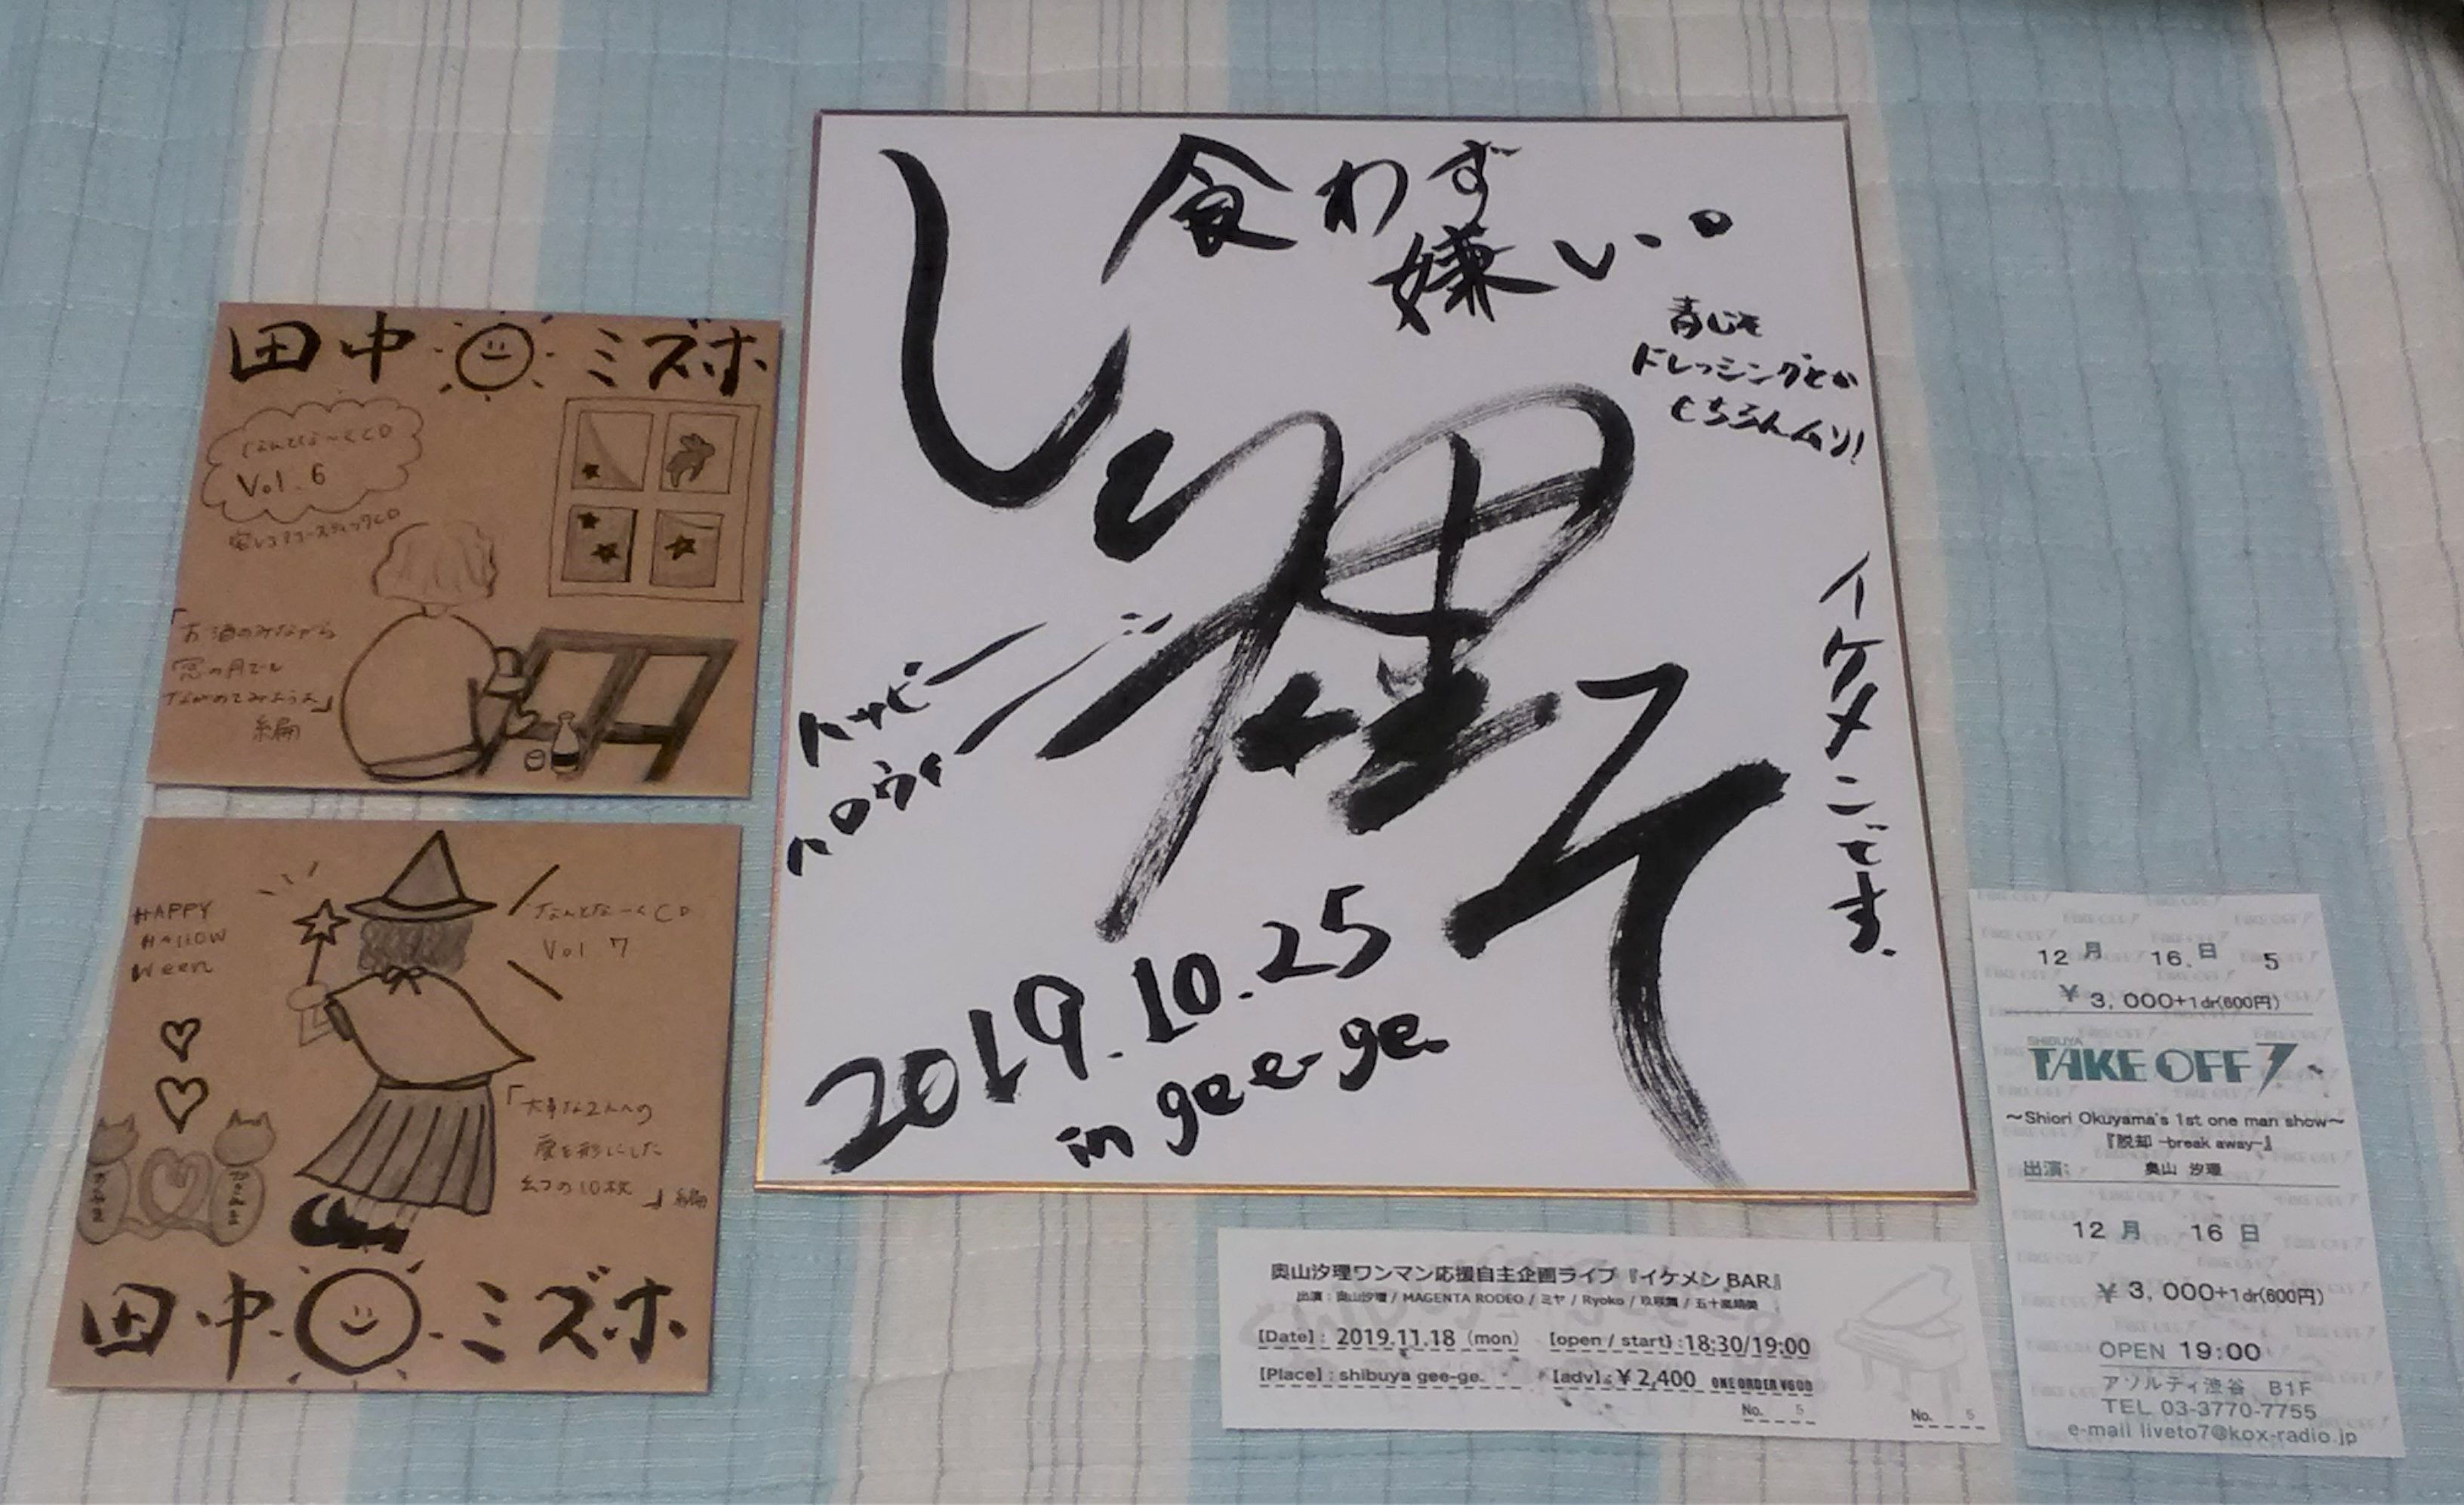 田中 ミズホ
なんとな〜くCD
Vol.6
宅レコアコースティックCD
「お酒のみながら
窓の月でも
ながめてみようよ」
編
HAPPY
HALLOW
Ween
なんとな〜くCD
Vol 7
「大事な2人への
愛を形にした
幻の10枚」編
田中 ミズホ
食わず
嫌い。
青じそ
ドレッシングとか
もちろんムリ!
イケメンです。
ハッピー
ハロウィーン
2019.10.25
in gee-ge.
奥山汐理ワンマン応援自主企画ライブ『イケメンBAR』
出演:奥山汐理 / MAGENTA RODEO / ミヤ / Ryoko / 玖咲舞 / 五十嵐晴美
[Date]: 2019.11.18 (mon) [open / start]:18:30/19:00
[Place]: shibuya gee-ge. [adv]:¥2,400 ONE ORDER ¥600
No. 5 No. 5
12月 16.日 5
¥3,000+1dr(600円)
SHIBUYA
TAKE OFF 7
〜Shiori Okuyama's 1st one man show〜
『脱却 -break away-』
出演: 奥山 汐理
12月 16日
¥3,000+1dr(600円)
OPEN 19:00
アソルティ渋谷 B1F
TEL 03-3770-7755
e-mail liveto7@kox-radio.jp